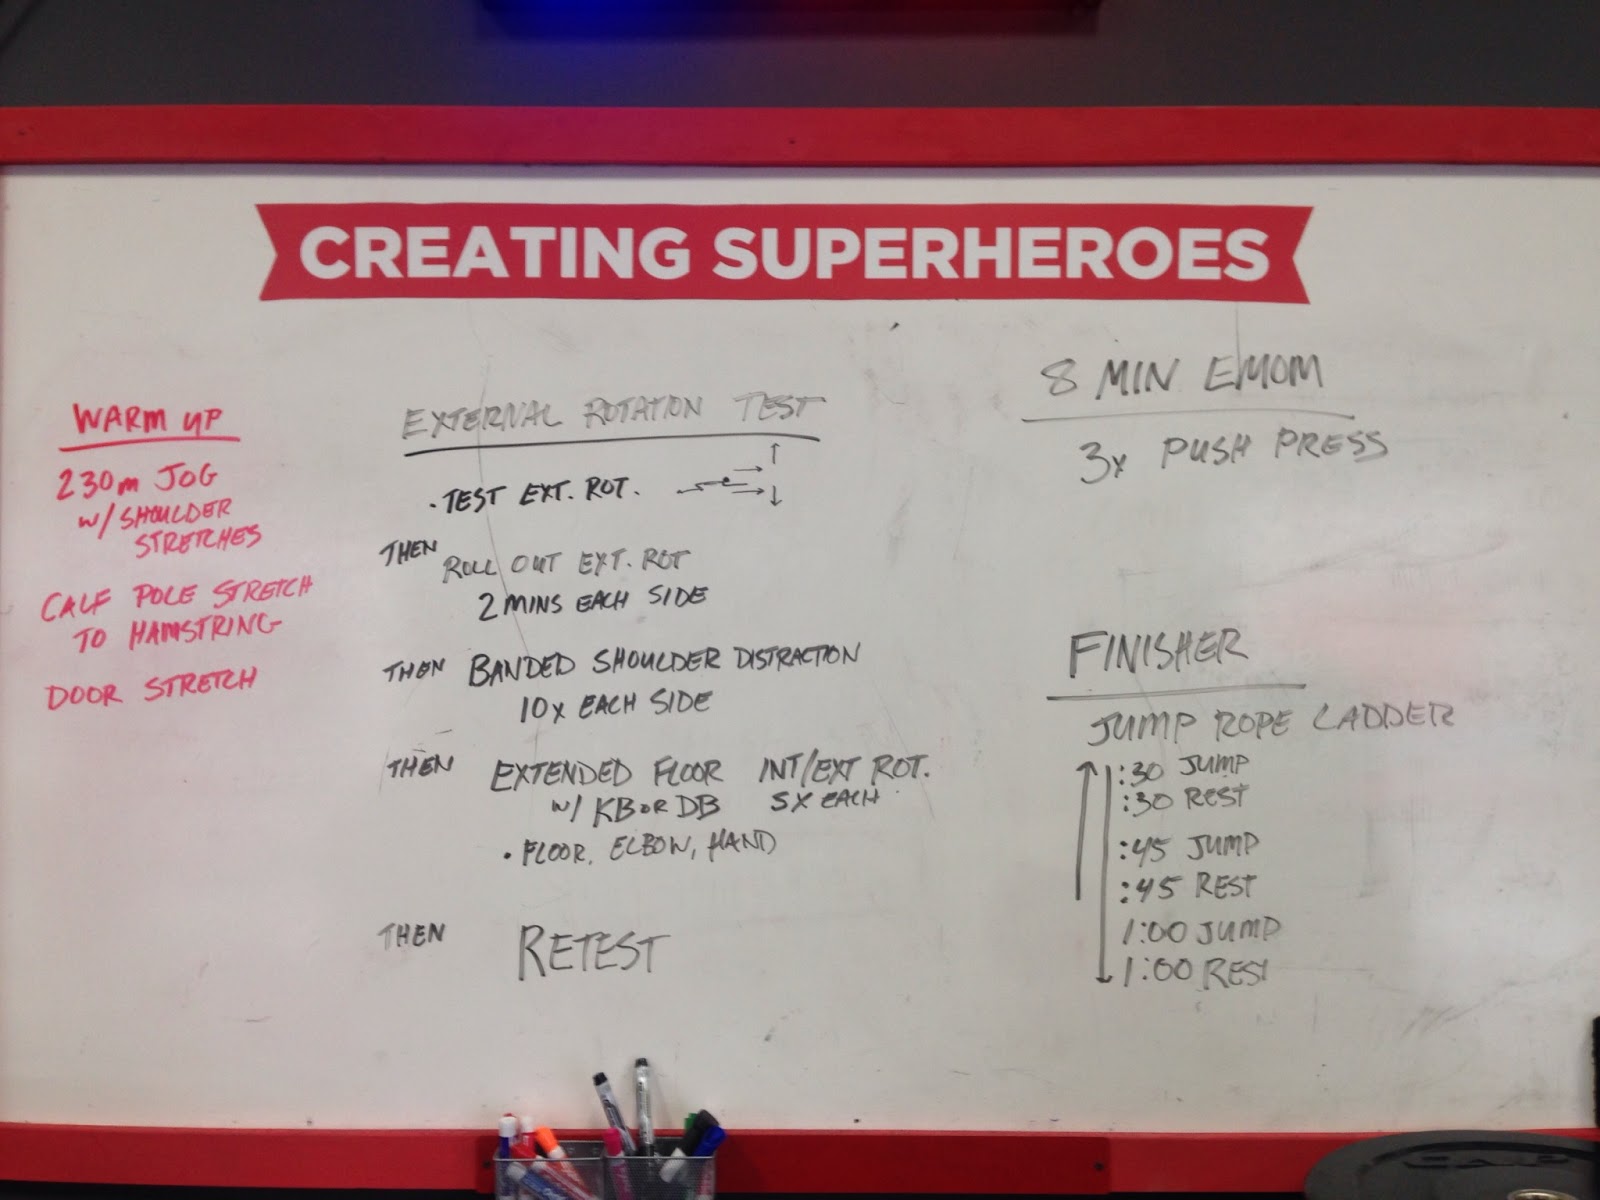 CREATING SUPERHEROES
WARM UP
230m JOG
w/ SHOULDER
STRETCHES
CALF POLE STRETCH
TO HAMSTRING
DOOR STRETCH
EXTERNAL ROTATION TEST
• TEST EXT. ROT.
THEN ROLL OUT EXT. ROT
2 MINS EACH SIDE
THEN BANDED SHOULDER DISTRACTION
10x EACH SIDE
THEN EXTENDED FLOOR INT/EXT ROT.
w/ KB OR DB 5X EACH
• FLOOR, ELBOW, HAND
THEN RETEST
8 MIN EMOM
3x PUSH PRESS
FINISHER
JUMP ROPE LADDER
:30 JUMP
:30 REST
:45 JUMP
:45 REST
1:00 JUMP
1:00 REST